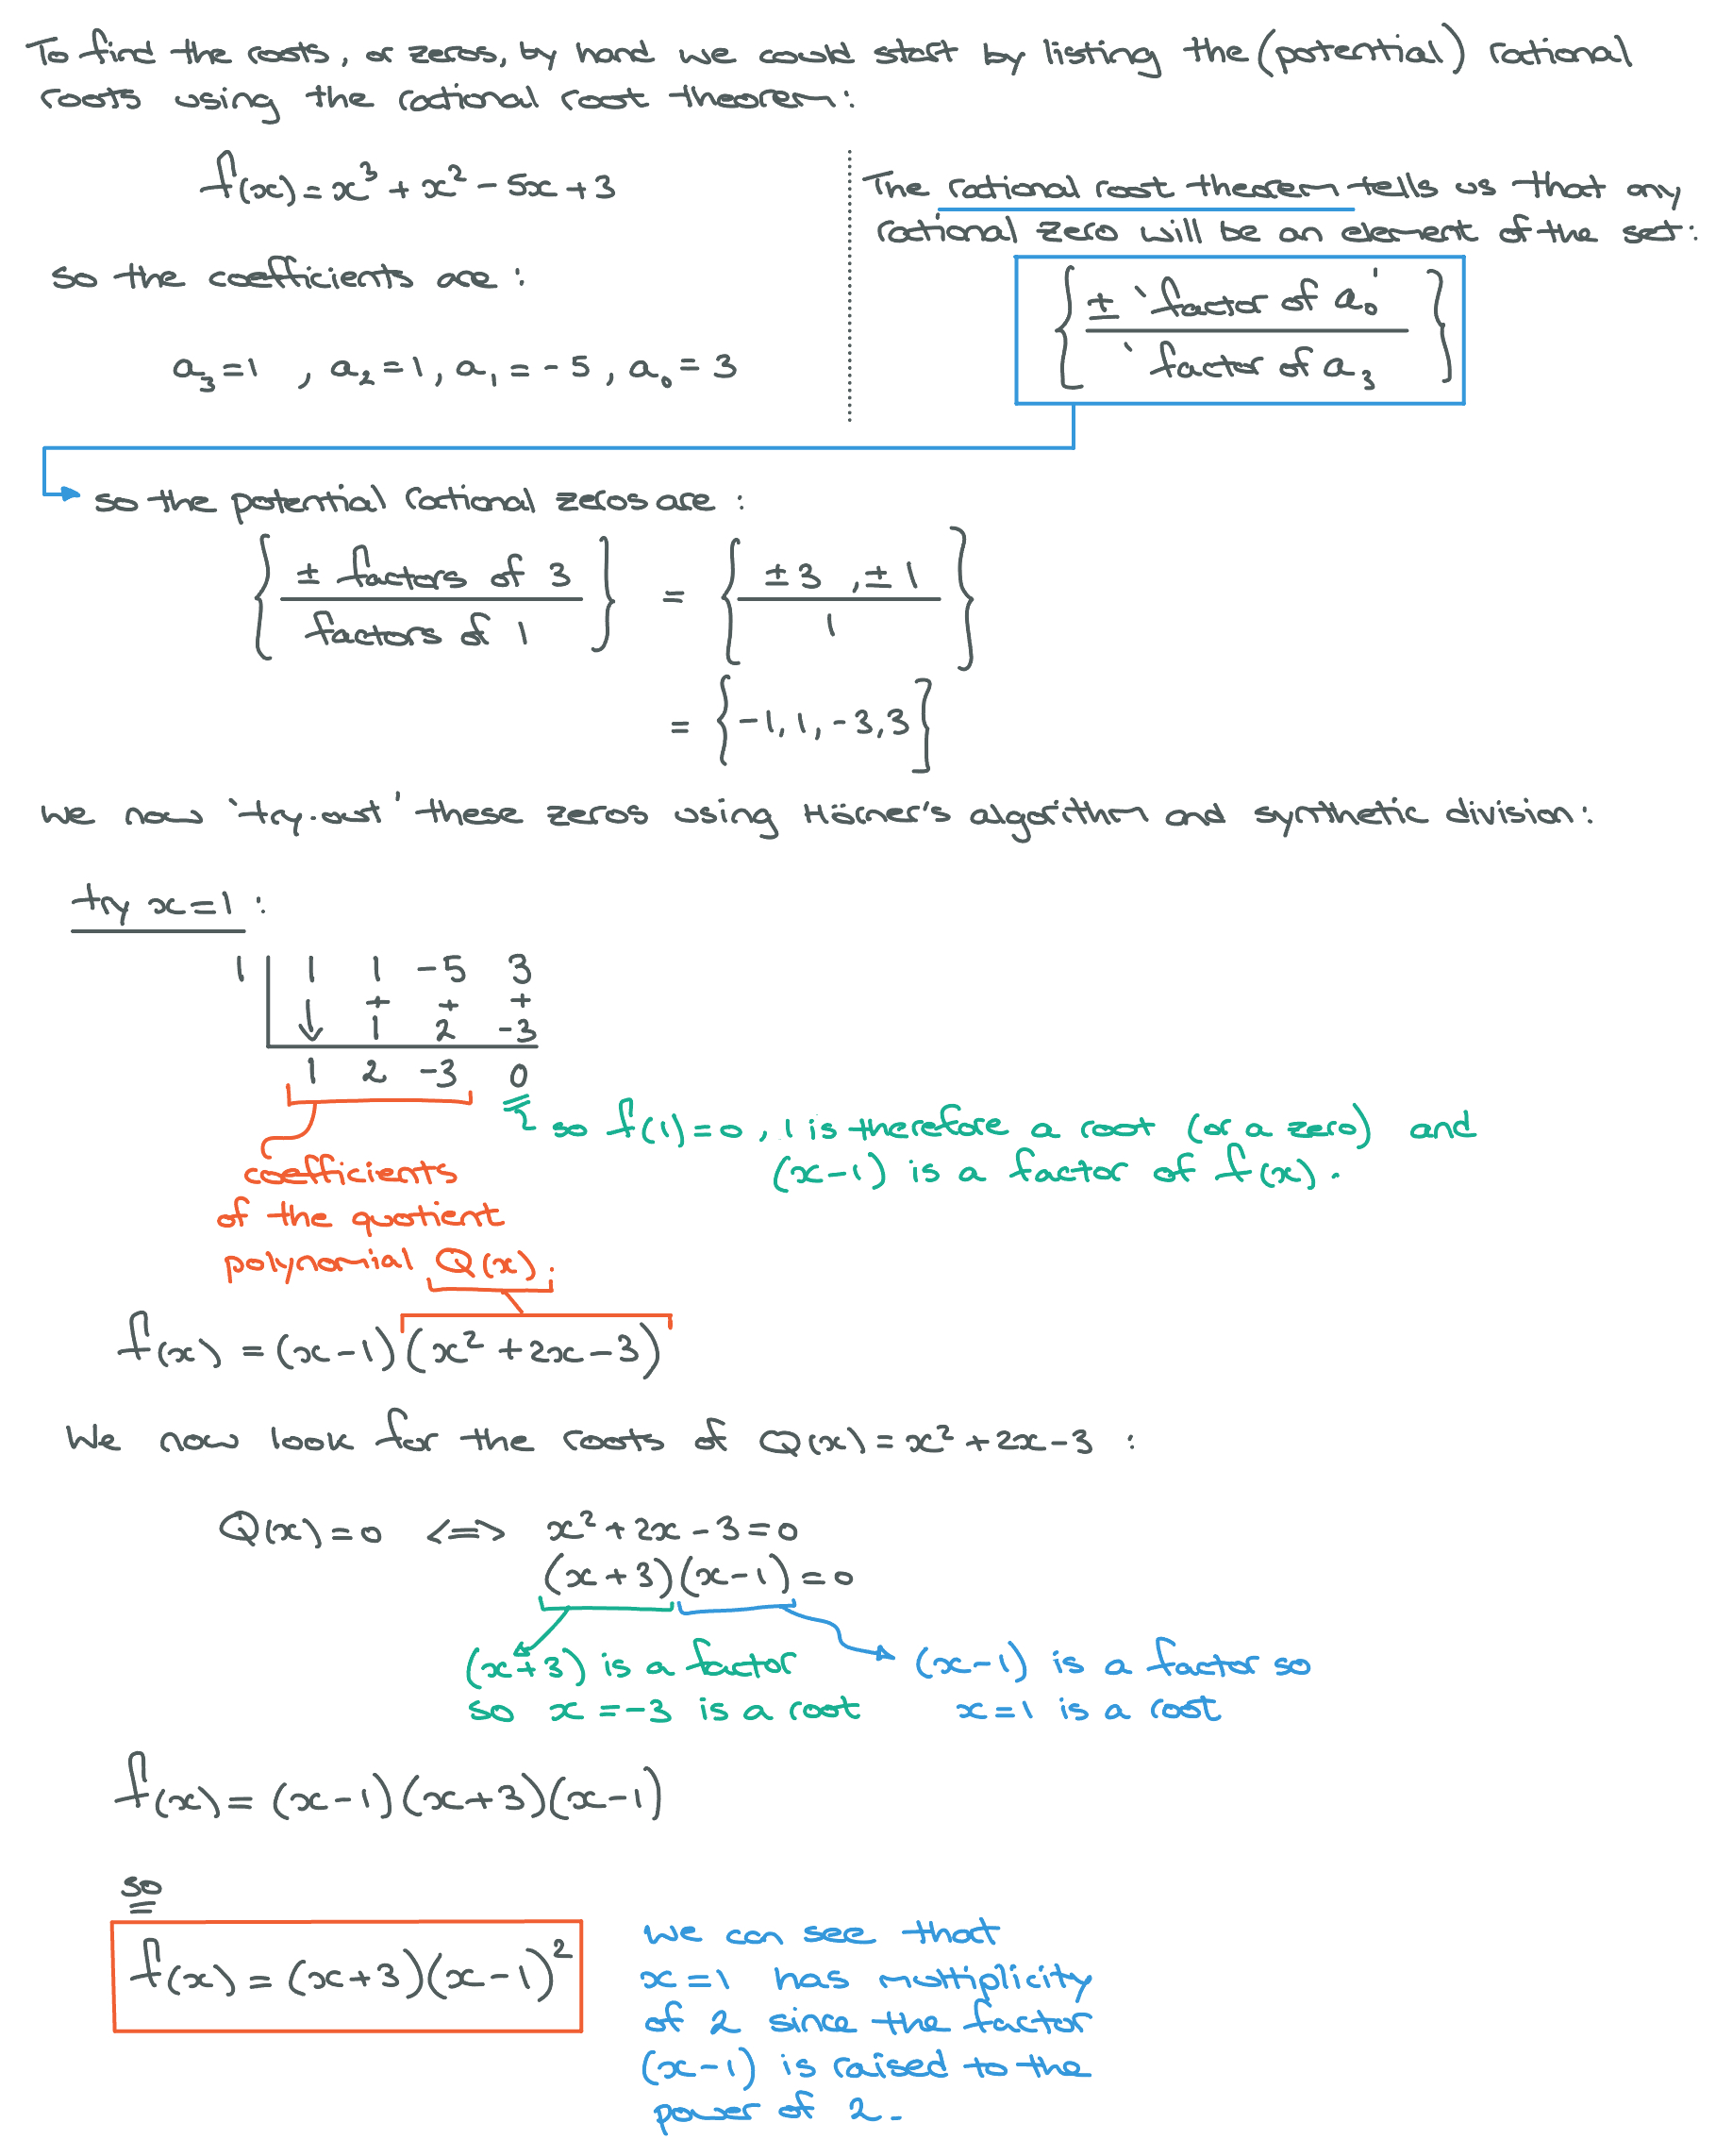 To find the roots, or zeros, by hand we could start by listing the (potential) rational
roots using the rational root theorem:
f(x) = x³ + x² - 5x + 3
so the coefficients are :
a₃ = 1 , a₂ = 1, a₁ = -5, a₀ = 3
The rational root theorem tells us that any
rational zero will be an element of the set:
{ ± 'factor of a₀'
'factor of a₃ }
so the potential rational zeros are :
{ ± factors of 3 / factors of 1 } = { ±3 , ±1 / 1 }
= {-1, 1, -3, 3}
We now 'try-out' these zeros using Hörner's algorithm and synthetic division:
try x = 1 :
1 | 1 1 -5 3
↓ + + +
1 2 -3
1 2 -3 0
so f(1) = 0, 1 is therefore a root (or a zero) and
(x-1) is a factor of f(x).
coefficients
of the quotient
polynomial Q(x).
f(x) = (x-1)(x² + 2x - 3)
We now look for the roots of Q(x) = x² + 2x - 3 :
Q(x) = 0 <=> x² + 2x - 3 = 0
(x+3)(x-1) = 0
(x+3) is a factor
so x = -3 is a root
(x-1) is a factor so
x = 1 is a root
f(x) = (x-1)(x+3)(x-1)
so
f(x) = (x+3)(x-1)²
we can see that
x = 1 has multiplicity
of 2 since the factor
(x-1) is raised to the
power of 2.